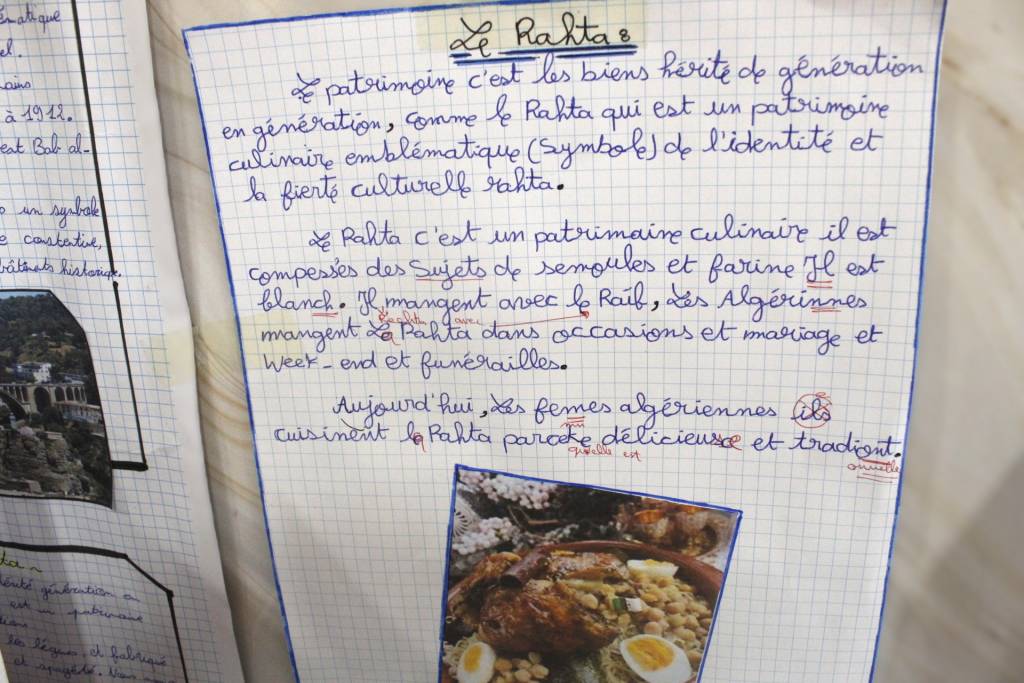 ématique
el.
à 1912.
est Bab al-
un symbole
constentive,
bâtiments historique.
hérité génération en
est un patrimoine
les légues et fabriqué
et spagété. Nous
Le Rahta :
Le patrimoine c'est les biens hérité de génération
en génération, comme le Rahta qui est un patrimoine
culinaire emblématique (Symbole) de l'identité et
la fierté culturelle rahta.
Le Rahta c'est un patrimaine culinaire il est
compessés des Sujets de semoules et farine Il est
blanch. Il mangent avec le Raïb, Les Algérinnes
Rechta avec
mangent La Rahta dans occasions et mariage et
Week-end et funérailles.
Aujourd'hui, Les femes algériennes ils
cuisinent la Rahta parceke délicieuse et tradiont.
qu'elle est
onnelle